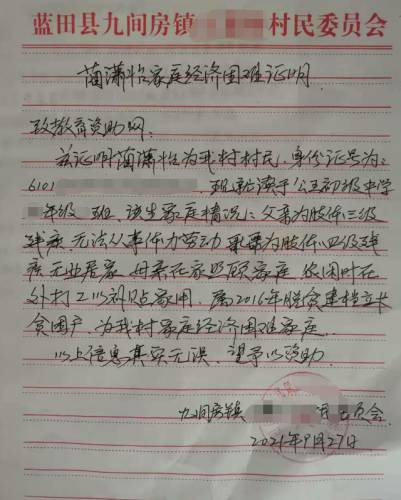 蓝田县九间房镇 村民委员会
蔺潇怡家庭经济困难证明
致教育资助网:
兹证明蔺潇怡为我村村民,身份证号为:
6101 现就读于公王初级中学
年级 班,该生家庭情况:父亲为肢体三级
残疾,无法从事体力劳动 为肢体四级残
疾无业居家,母亲在家照顾家庭 闲时在
外打工以补贴家用,属2016年脱贫建档立卡
贫困户,为我村家庭经济困难家庭.
以上信息真实无误,望予以资助.
九间房镇 民委员会
2021年9月27日